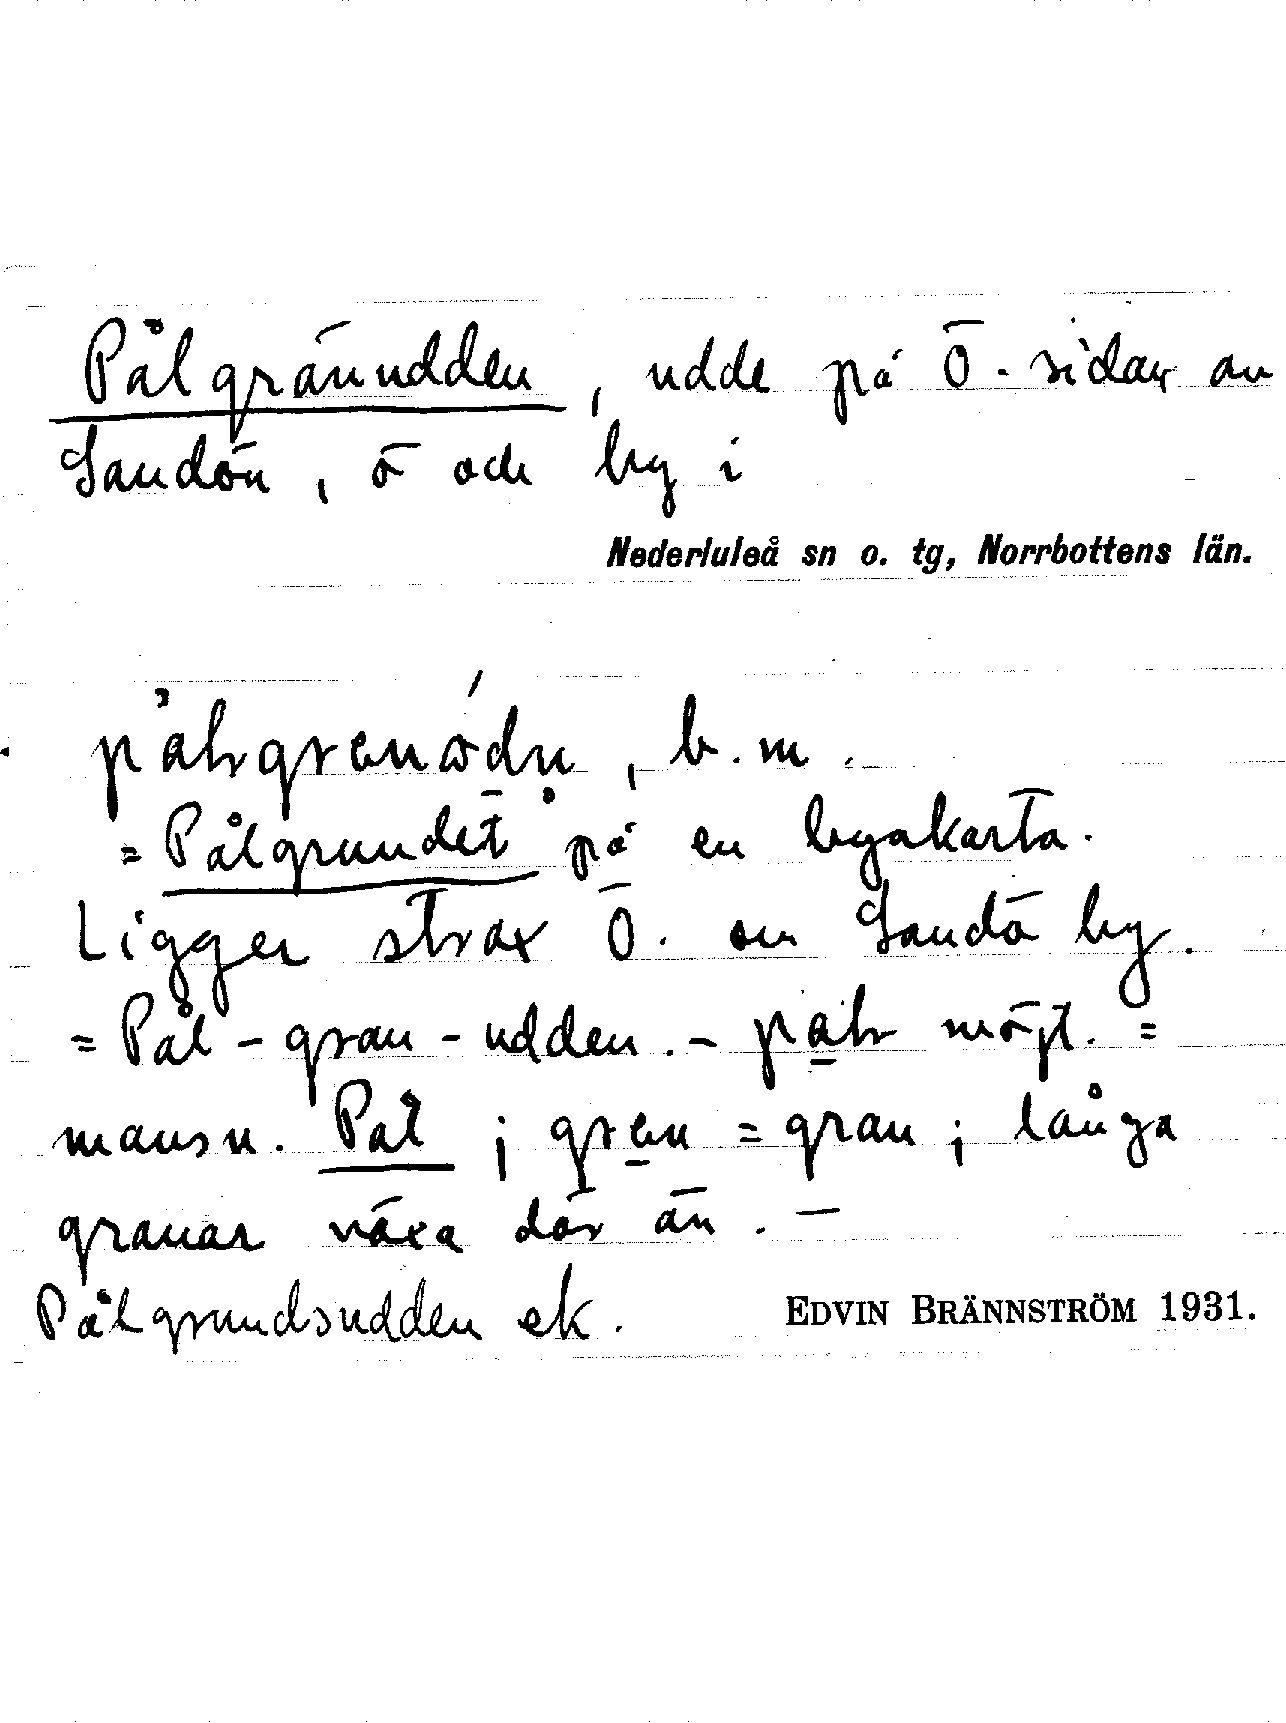 Pålgränudden, udde på Ö-sidan av
Sandön, ö och by i
Nederluleå sn o. tg, Norrbottens län.
b.m.
= Pålgrundet på en byakarta.
Ligger strax Ö. om Sandö by.
= Pål-gran-udden. - möjl. =
mansn. Pål ; = gran ; långa
granar växa där än. -
Pålgrundsudden ek. EDVIN BRÄNNSTRÖM 1931.